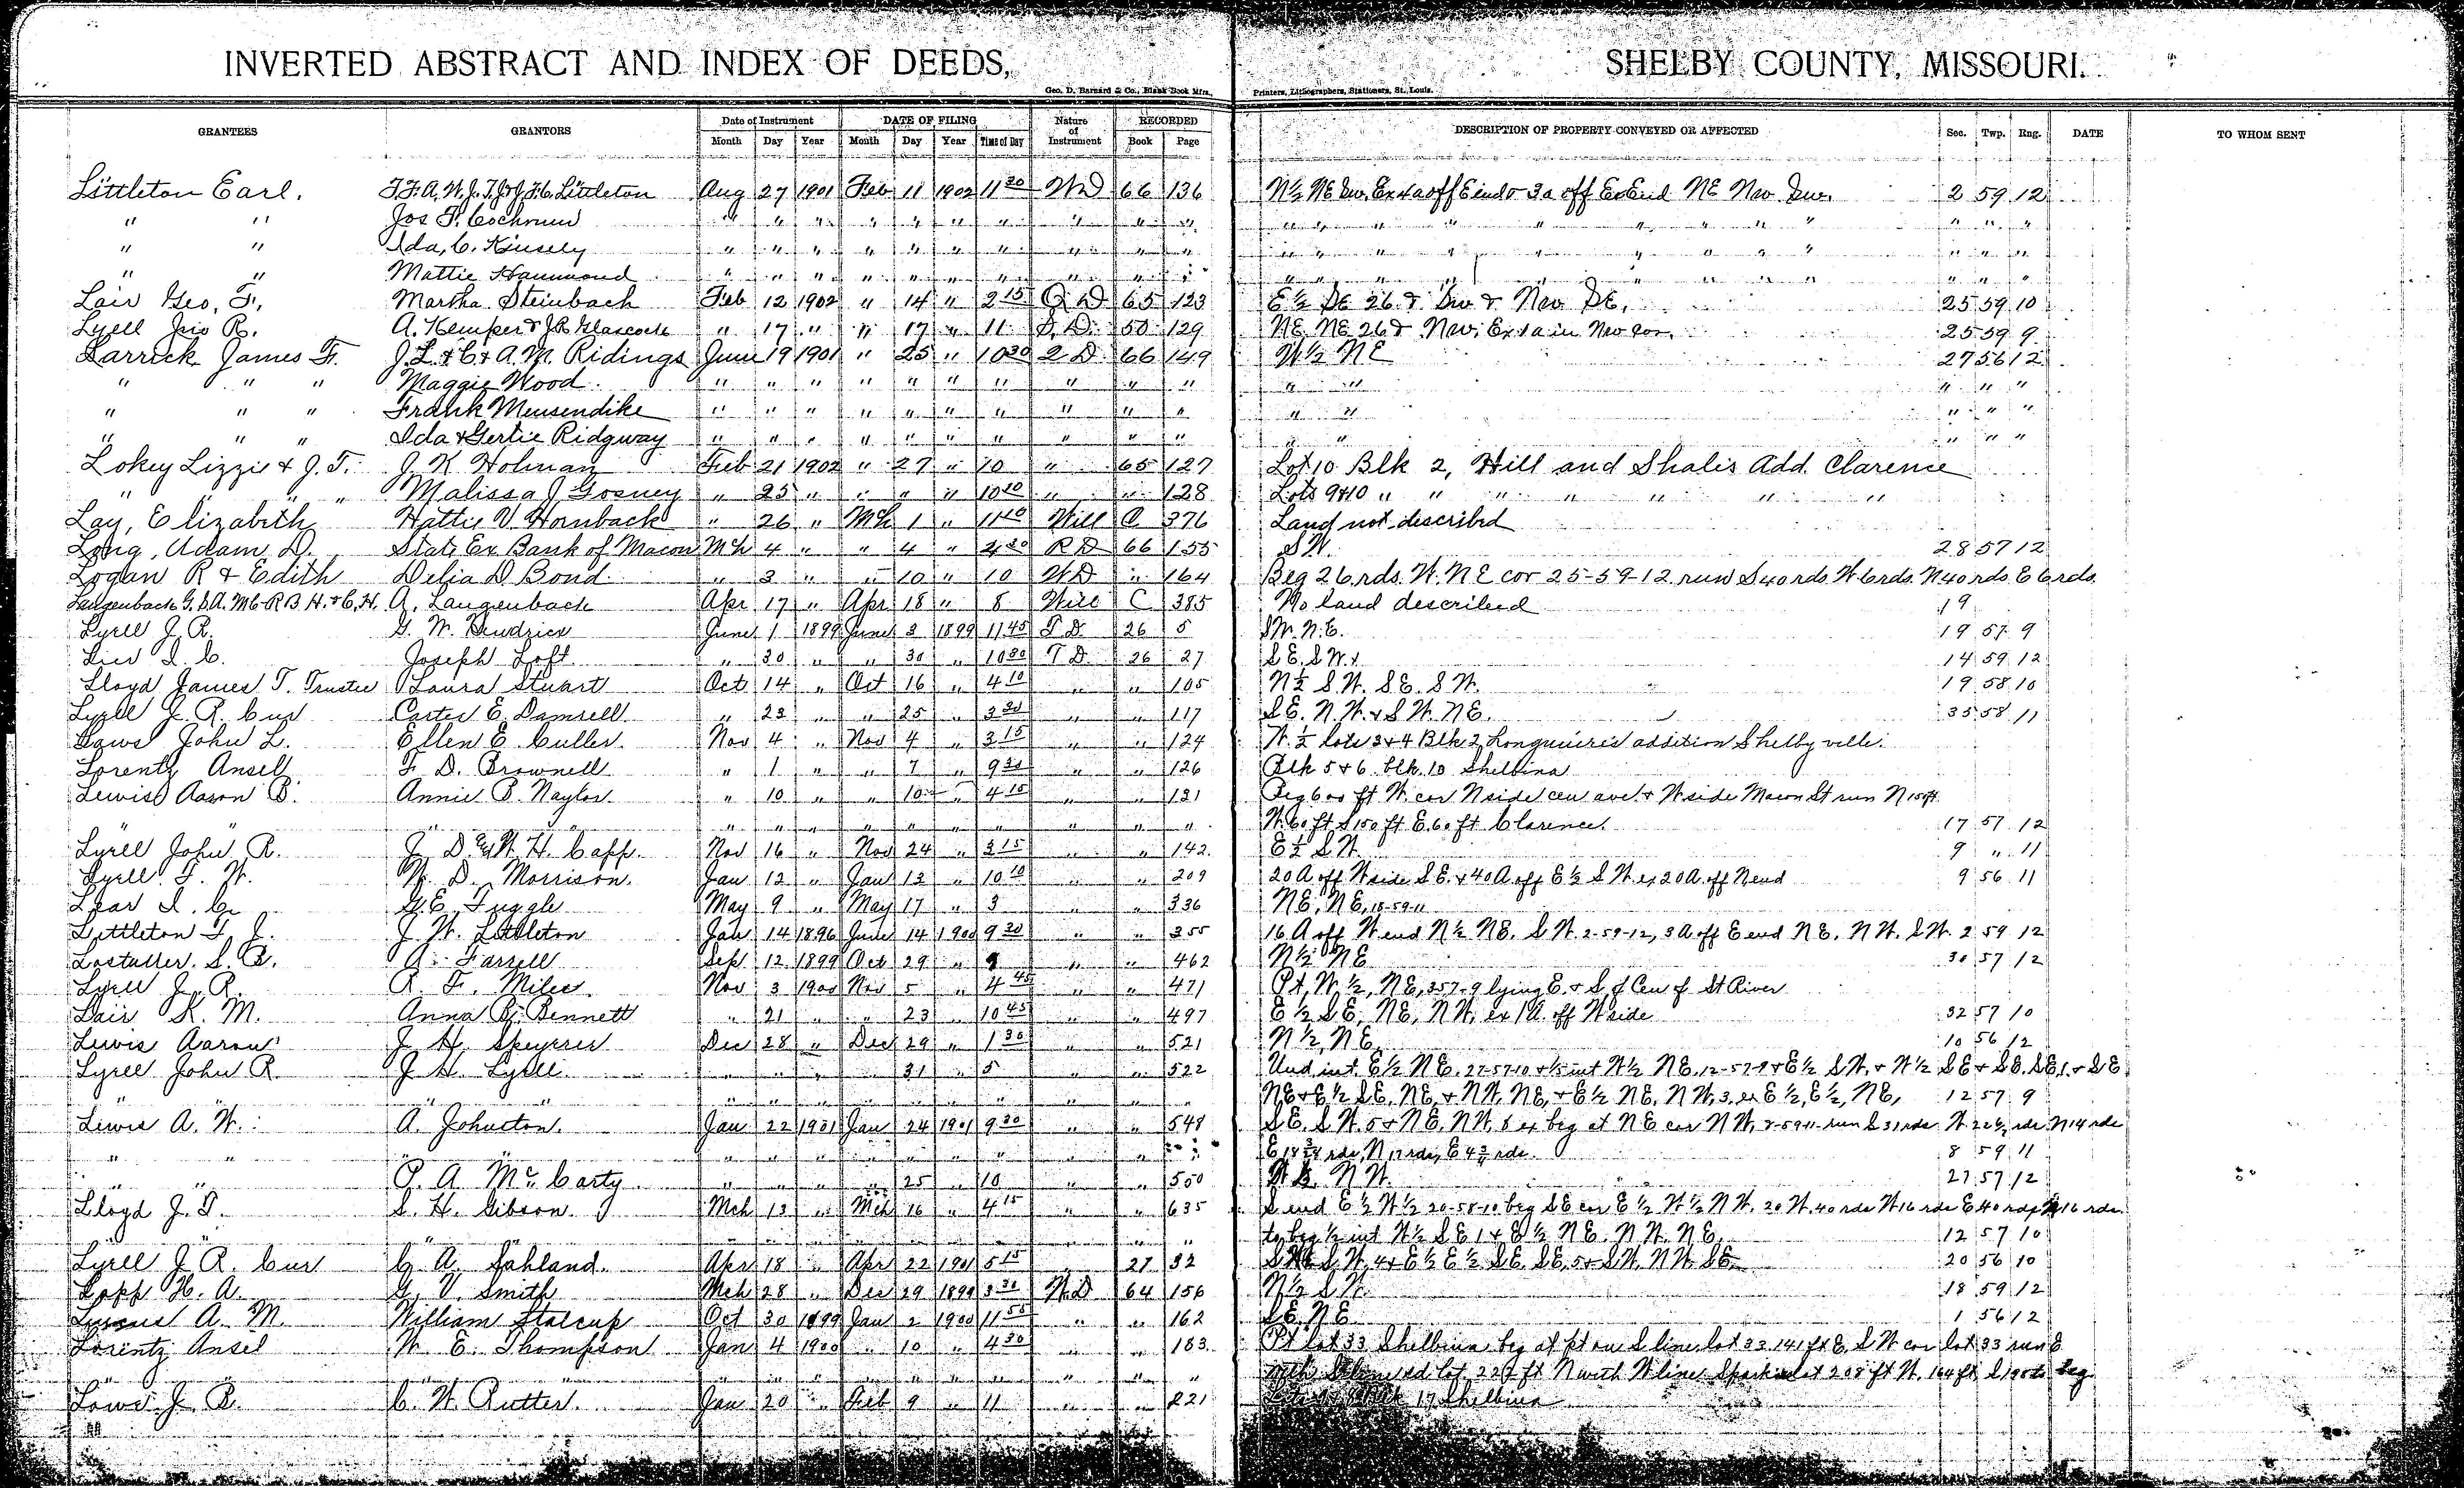 INVERTED ABSTRACT AND INDEX OF DEEDS, SHELBY COUNTY, MISSOURI.
Geo. D. Barnard & Co., Blank Book Mfrs., Printers, Lithographers, Stationers, St. Louis.
GRANTEES GRANTORS Date of Instrument DATE OF FILING Nature of Instrument RECORDED DESCRIPTION OF PROPERTY CONVEYED OR AFFECTED Sec. Twp. Rng. DATE TO WHOM SENT
Month Day Year Month Day Year Time of Day Book Page
Littleton Earl. Littleton Aug 27 1901 Feb 11 1902 11 30 WD 66 136 N½ NE Sw. 2 59 12
" " Jos T. Cochrum " " " " " " " " " " " " "
" " Ida, C. Kinsely " " " " " " " " " " " " "
" " Mattie Hammond " " " " " " " " " " " " "
Lair Geo, F., Martha Steinbach Feb 12 1902 " 14 " 2 15 Q D 65 123 E½ SE 26 & Sw & Nw SE, 25 59 10
Lyell Jno R. A. Kemper & J R Glascock " 17 " " 17 " 11 50 129 NE NE 26 & Nw, Ex 1a in Nw cor. 25 59 9
Larrick James F. J. L. & C & A. M. Ridings June 19 1901 " 25 " 10 30 2 D 66 149 W½ NE 27 56 12
" " " Maggie Wood " " " " " " " " " " " " " " "
" " " Frank Meusendike " " " " " " " " " " " " " " "
" " " Ida & Gertie Ridgway " " " " " " " " " " " " " " "
Lokey Lizzie & J. T. J. K Holman Feb 21 1902 " 27 " 10 " 65 127 Lot 10 Blk 2, Hill and Shalis Add. Clarence
" " " " Malissa J Gosney " 25 " " " " 10 10 " " 128 Lots 9&10 " " " " " " "
Lay, Elizabeth Hattie V Hornback " 26 " Mch 1 " 11 10 Will C 376 Land not described
Long, Adam D. State Ex Bank of Macon Mch 4 " " 4 " 2 30 R D 66 155 SW. 28 57 12
Logan R & Edith Delia D Bond " 3 " " 10 " 10 WD " 164 Beg 26 rds. W. NE cor 25-59-12 run S 40 rds W 6 rds. N 40 rds E 6 rds.
Langenback G. S. A. M C R B H. & C. H. A. Langenback Apr 17 " Apr 18 " 8 Will C 385 No land described 19
Lyell J. R. G. W. Hendrics June 1 1899 June 3 1899 11 45 T D. 26 5 SW. N.E. 19 57 9
Joseph Loft " 30 " " 30 " 10 30 T D. 26 27 S E. S W. 14 59 12
Lloyd James T. Trustee Laura Stuart Oct 14 " Oct 16 " 4 10 " " 105 N½ S.W. SE. S W. 19 58 10
Lyell J. R. Cur Carter E. Damrell " 23 " " 25 " 3 30 " " 117 S E. N. W. & S W. N E. 35 58 11
Laws John L. Ellen E. Culler. Nov 4 " Nov 4 " 3 15 " " 124 W. ½ lots 3 & 4 Blk 2 Longmire's addition Shelbyville.
Lorentz Ansell F. D. Brownell " 1 " " 7 " 9 30 " " 126 Blk 5 & 6. blk. 10 Shelbina
Lewis Aaron B. Annie B. Naylor. " 10 " " 10 " 4 15 " " 131 Beg 600 ft W. cor N side cen ave. & W side Macon St run N 150 ft.
" " " " " " " " " " " " W. 60 ft S 150 ft E. 60 ft Clarence. 17 57 12
Lyell John R. J. D. & W. H. Capp. Nov 16 " Nov 24 " 3 15 " " 142. E½ S W. 9 " 11
Lyell. F. W. W. D. Morrison. Jan 12 " Jan 13 " 10 10 " " 209 20 A off W side S E. & 40 A off E½ S W ex 20 A. off N end 9 56 11
Lear I. C. G. E. Tuggle May 9 " May 17 " 3 " " 336 NE. NE, 18-59-11
Littleton F. J. J. W. Littleton Jan 14 1896 June 14 1900 9 30 " " 355 16 A off W end N½ NE. S W. 2-59-12, 3 A off E end NE. N W. S W. 2 59 12
Lostutter. S. B. A. Farrell Sept 12 1899 Oct 29 " 9 " " 462 N½ NE 30 57 12
Lyell J. R. R. F. Miles. Nov 3 1900 Nov 5 " 4 45 " " 471 Pt, W. ½, NE, 3 57-9 lying E. & S of Cen of St River
Lair K. M. Anna B. Bennett " 21 " " 23 " 10 45 " " 497 E½ S E, NE, N W, ex 1 A. off W side 32 57 10
Lewis Aaron J. H. Speyerer Dec 28 " Dec 29 " 1 30 " " 521 N½, NE, 10 56 12
Lyell John R. J. H. Lyell. " " " " 31 " 5 " " 522 Und. int. E½ NE. 27-57-10 & ½ int W½ NE. 12-57-9 & E½ S W. & W½ S E & S E. S E, 1. & S E
" " " " " " " " " " " " NE & E½ S E, NE, & N W, NE, & E½ NE. N W, 3, ex E½, E½, NE, 12 57 9
Lewis A. W. A. Johnston. Jan 22 1901 Jan 24 1901 9 30 " " 548 S E. S W. 5 & NE, N W, 8 ex beg at NE cor N W, 8-59-11 run S 31 rds W. 22½ rds N 14 rds
" " " " " " " " " E 18¾ rds, N 17 rds, E 4¾ rds. 8 59 11
" " P. A. McCarty. " " " " 25 " 10 " " 550 N W. 27 57 12
Lloyd J. T. S. H. Gibson. Mch 13 " Mch 16 " 4 15 " " 635 S end E½ W½ 20-58-10 beg SE cor E½ W½ N W. 20 W. 40 rds W 16 rds E 40 rds N 16 rds.
" " " " " " " " " " " to beg ½ int W½ S E 1 & E½ NE. N W. NE, 12 57 10
Lyell J. R. Cur G. A. Sahland. Apr 18 " Apr 22 1901 5 15 27 32 S W, 4 & E½ E½ S E. S E, 5 & S W. N W. S E. 20 56 10
Lapp H. A. G. V. Smith Mch 28 " Dec 29 1899 3 30 W. D 64 156 N½ S W. 18 59 12
A. M. William Stalcup Oct 30 1899 Jan 2 1900 11 55 " " 162 S E. NE 1 56 12
Lorentz Ansel W. E. Thompson Jan 4 1900 " 10 " 4 30 " " 183. Pt lot 33 Shelbina beg at pt on S line lot 33 141 ft E. S W cor lot 33 run E
" " " " " " " " " " " " lot, 229 ft N with W line lot 208 ft W. 164 ft S 195 to beg
Lowe J. B. C. W. Rutter. Jan 20 " Feb 9 " 11 " " 221 17 Shelbina